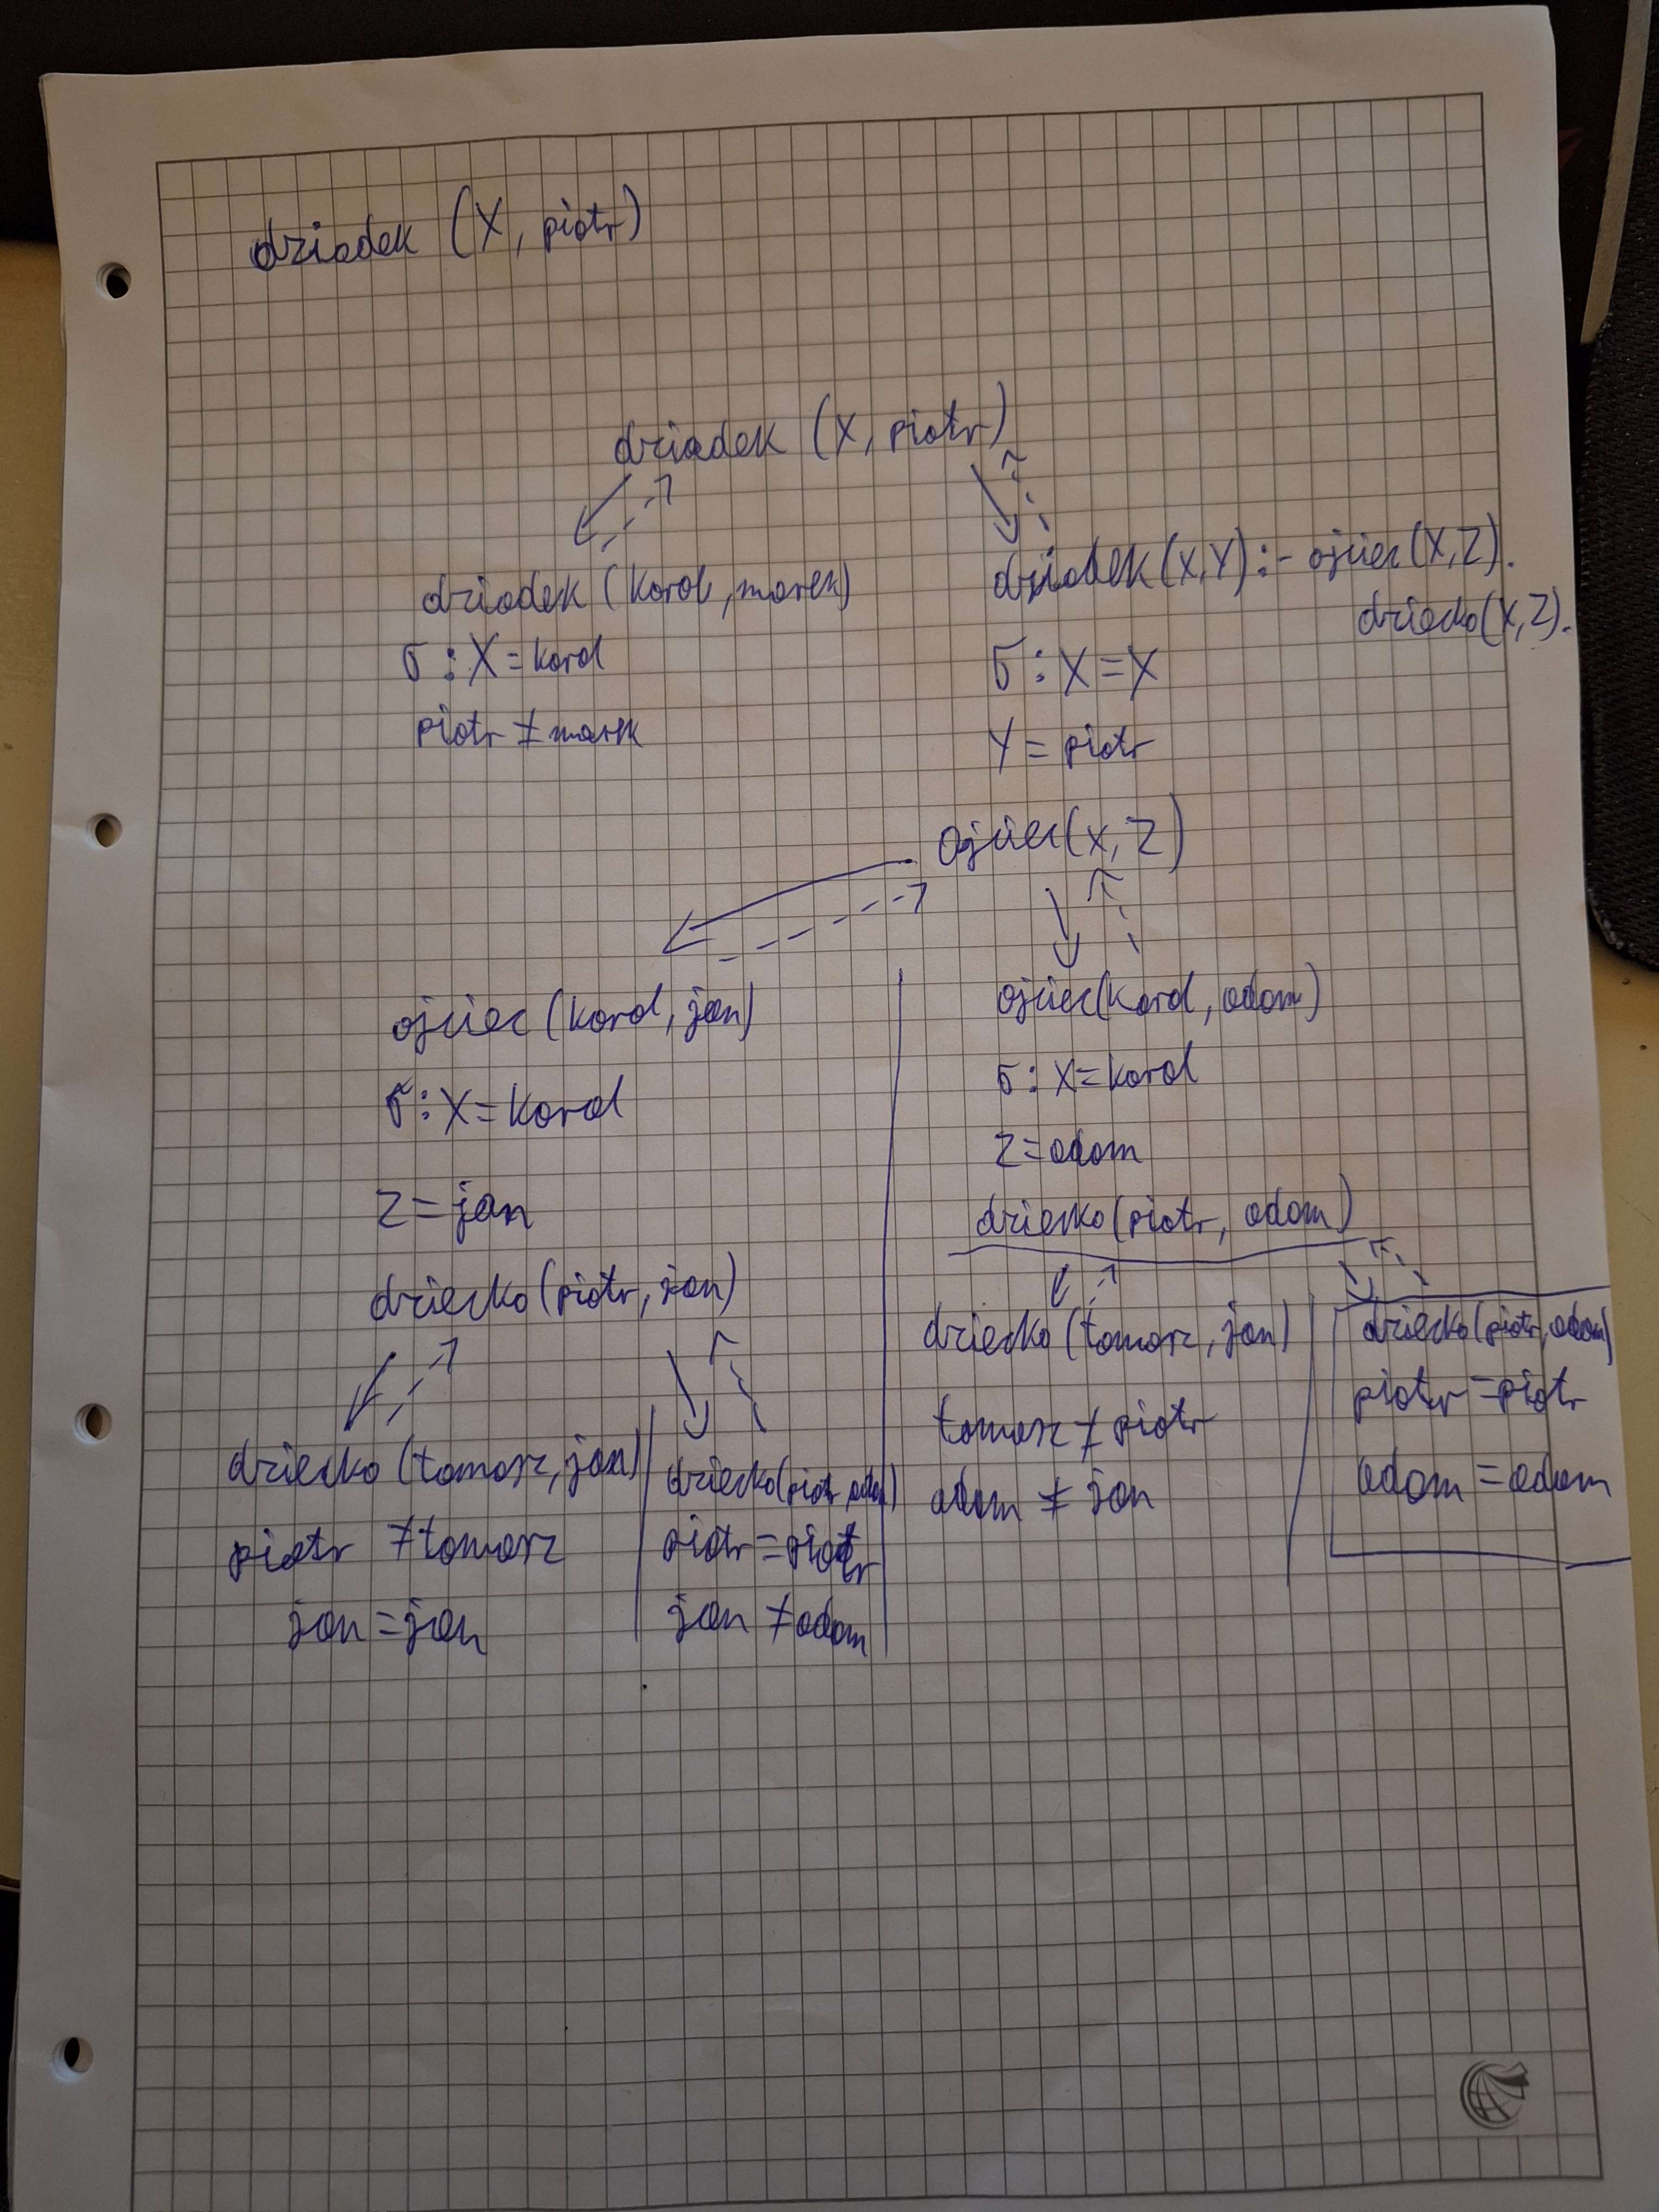 dziadek (X, piotr)
dziadek (X, piotr)
dziadek (karol, marek)
σ : X = karol
piotr ≠ marek
dziadek(X,Y) :- ojciec(X,Z).
dziecko(Y,Z).
σ : X = X
Y = piotr
ojciec(X, Z)
ojciec (karol, jan)
σ : X = karol
Z = jan
dziecko (piotr, jan)
dziecko (tomasz, jan)
piotr ≠ tomasz
jan = jan
dziecko(piotr, adam)
piotr = piotr
jan ≠ adam
ojciec(karol, adam)
σ : X = karol
Z = adam
dziecko(piotr, adam)
dziecko (tomasz, jan)
tomasz ≠ piotr
adam ≠ jan
dziecko(piotr, adam)
piotr = piotr
adam = adam